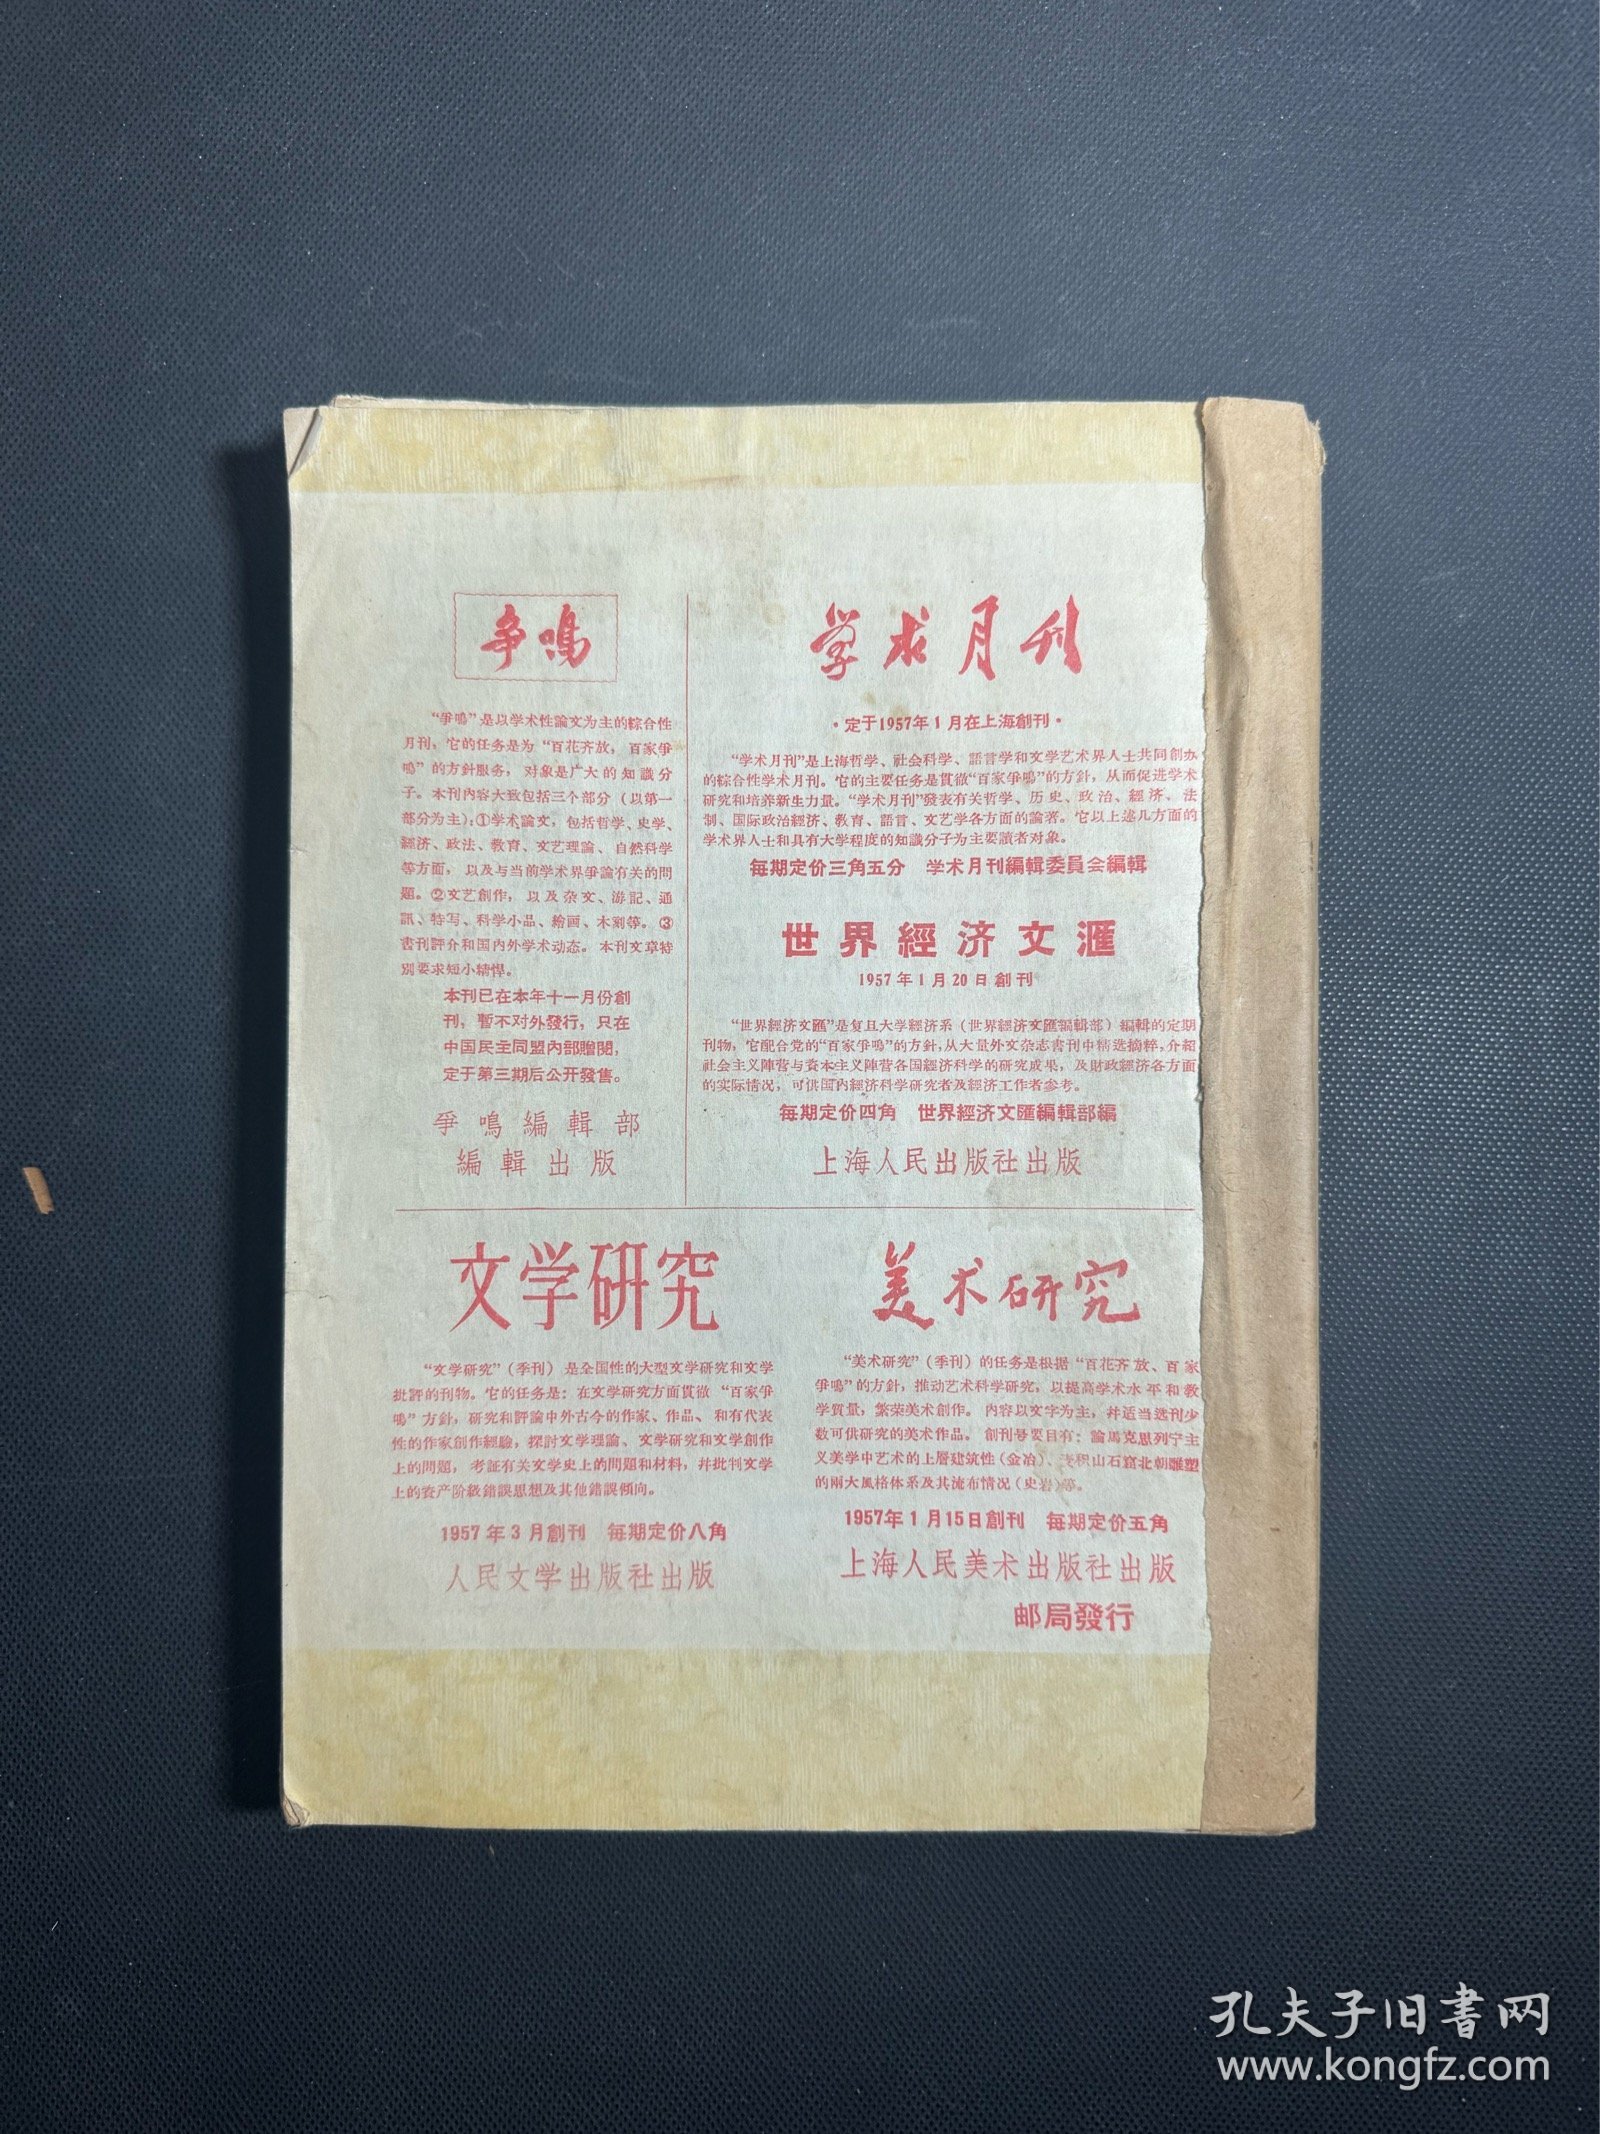 爭鳴
“爭鳴”是以学术性論文为主的綜合性
月刊，它的任务是为“百花齐放，百家爭
鳴”的方針服务，对象是广大的知識分
子。本刊內容大致包括三个部分（以第一
部分为主）：①学术論文，包括哲学、史学、
經济、政法、教育、文艺理論、自然科学
等方面，以及与当前学术界爭論有关的問
題。②文艺創作，以及杂文、游記、通
訊、特写、科学小品、繪画、木刻等。③
書刊評介和国內外学术动态。本刊文章特
別要求短小精悍。
本刊已在本年十一月份創
刊，暫不对外發行，只在
中国民主同盟內部贈閱，
定于第三期后公开發售。
爭鳴編輯部
編輯出版
学术月刊
·定于1957年1月在上海創刊·
“学术月刊”是上海哲学、社会科学、語言学和文学艺术界人士共同創办
的綜合性学术月刊。它的主要任务是貫徹“百家爭鳴”的方針，从而促进学术
研究和培养新生力量。“学术月刊”發表有关哲学、历史、政治、經济、法
制、国际政治經济、教育、語言、文艺学各方面的論著。它以上述几方面的
学术界人士和具有大学程度的知識分子为主要讀者对象。
每期定价三角五分　学术月刊編輯委員会編輯
世界經济文滙
1957年1月20日創刊
“世界經济文匯”是复旦大学經济系（世界經济文匯編輯部）編輯的定期
刊物，它配合党的“百家爭鳴”的方針，从大量外文杂志書刊中精选摘粹，介紹
社会主义陣营与資本主义陣营各国經济科学的研究成果，及財政經济各方面
的实际情况，可供国內經济科学研究者及經济工作者参考。
每期定价四角　世界經济文匯編輯部編
上海人民出版社出版
文学研究
“文学研究”（季刊）是全国性的大型文学研究和文学
批評的刊物。它的任务是：在文学研究方面貫徹“百家爭
鳴”方針，研究和評論中外古今的作家、作品、和有代表
性的作家創作經驗，探討文学理論、文学研究和文学創作
上的問題，考証有关文学史上的問題和材料，幷批判文学
上的資产阶級錯誤思想及其他錯誤傾向。
1957年3月創刊　每期定价八角
人民文学出版社出版
美术研究
“美术研究”（季刊）的任务是根据“百花齐放、百家
爭鳴”的方針，推动艺术科学研究，以提高学术水平和教
学質量，繁荣美术創作。内容以文字为主，幷适当选刊少
数可供研究的美术作品。創刊号要目有：論馬克思列宁主
义美学中艺术的上層建筑性（金冶）、麦积山石窟北朝雕塑
的兩大風格体系及其流布情况（史岩）等。
1957年1月15日創刊　每期定价五角
上海人民美术出版社出版
邮局發行
孔夫子旧書网
www.kongfz.com